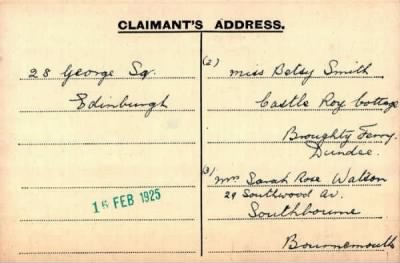 CLAIMANT'S ADDRESS.
28 George Sq.
Edinburgh
16 FEB 1925
(2) Miss Betsy Smith
Castle Roy Cottage
Broughty Ferry.
Dundee.
(3) Mrs Sarah Rose Watson
29 Southwood Av.
Southbourne
Bournemouth